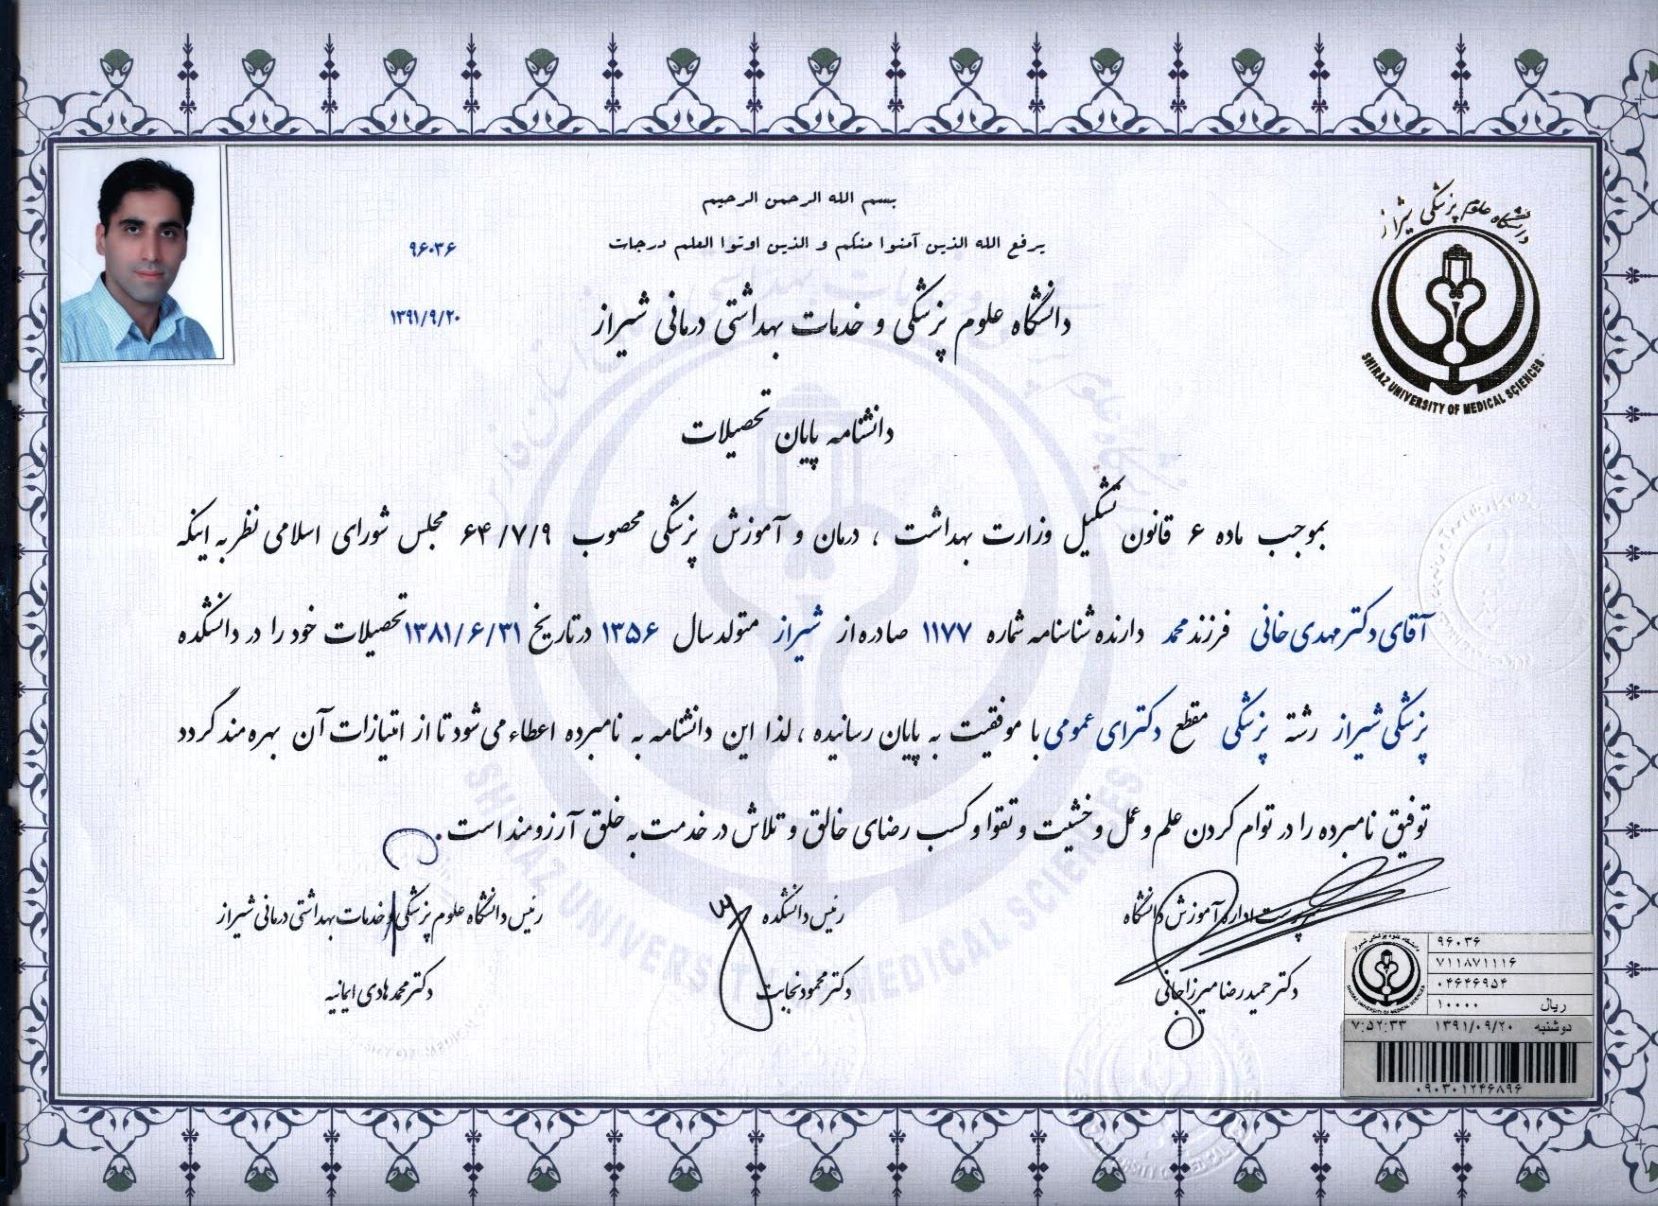 بسم الله الرحمن الرحیم
یرفع الله الذین آمنوا منکم و الذین اوتوا العلم درجات
۹۶۰۳۶
۱۳۹۱/۹/۲۰
دانشگاه علوم پزشکی و خدمات بهداشتی درمانی شیراز
دانشگاه علوم پزشکی شیراز
SHIRAZ UNIVERSITY OF MEDICAL SCIENCES
دانشنامه پایان تحصیلات
بموجب ماده ۶ قانون تشکیل وزارت بهداشت ، درمان و آموزش پزشکی مصوب ۶۴/۷/۹ مجلس شورای اسلامی نظر به اینکه
آقای دکتر مهدی خانی فرزند محمد دارنده شناسنامه شماره ۱۱۷۷ صادره از شیراز متولد سال ۱۳۵۶ در تاریخ ۱۳۸۱/۶/۳۱ تحصیلات خود را در دانشکده
پزشکی شیراز رشته پزشکی مقطع دکترای عمومی با موفقیت به پایان رسانیده ، لذا این دانشنامه به نامبرده اعطاء می شود تا از امتیازات آن بهره مند گردد
توفیق نامبرده را در توام کردن علم و عمل و خشیت و تقوا و کسب رضای خالق و تلاش در خدمت به خلق آرزومند است .
سرپرست اداره آموزش دانشگاه
دکتر حمیدرضا میرزاجانی
رئیس دانشکده
دکتر محمود نجابت
رئیس دانشگاه علوم پزشکی و خدمات بهداشتی درمانی شیراز
دکتر محمد هادی ایمانیه
SHIRAZ UNIVERSITY OF MEDICAL SCIENCES
۹۶۰۳۶
۷۱۱۸۷۱۱۱۶
۰۴۶۴۶۹۵۴
ریال ۱۰۰۰۰
دوشنبه ۱۳۹۱/۰۹/۲۰ ۷:۵۲:۳۳
۰۹۰۳۰۱۲۴۶۸۹۶